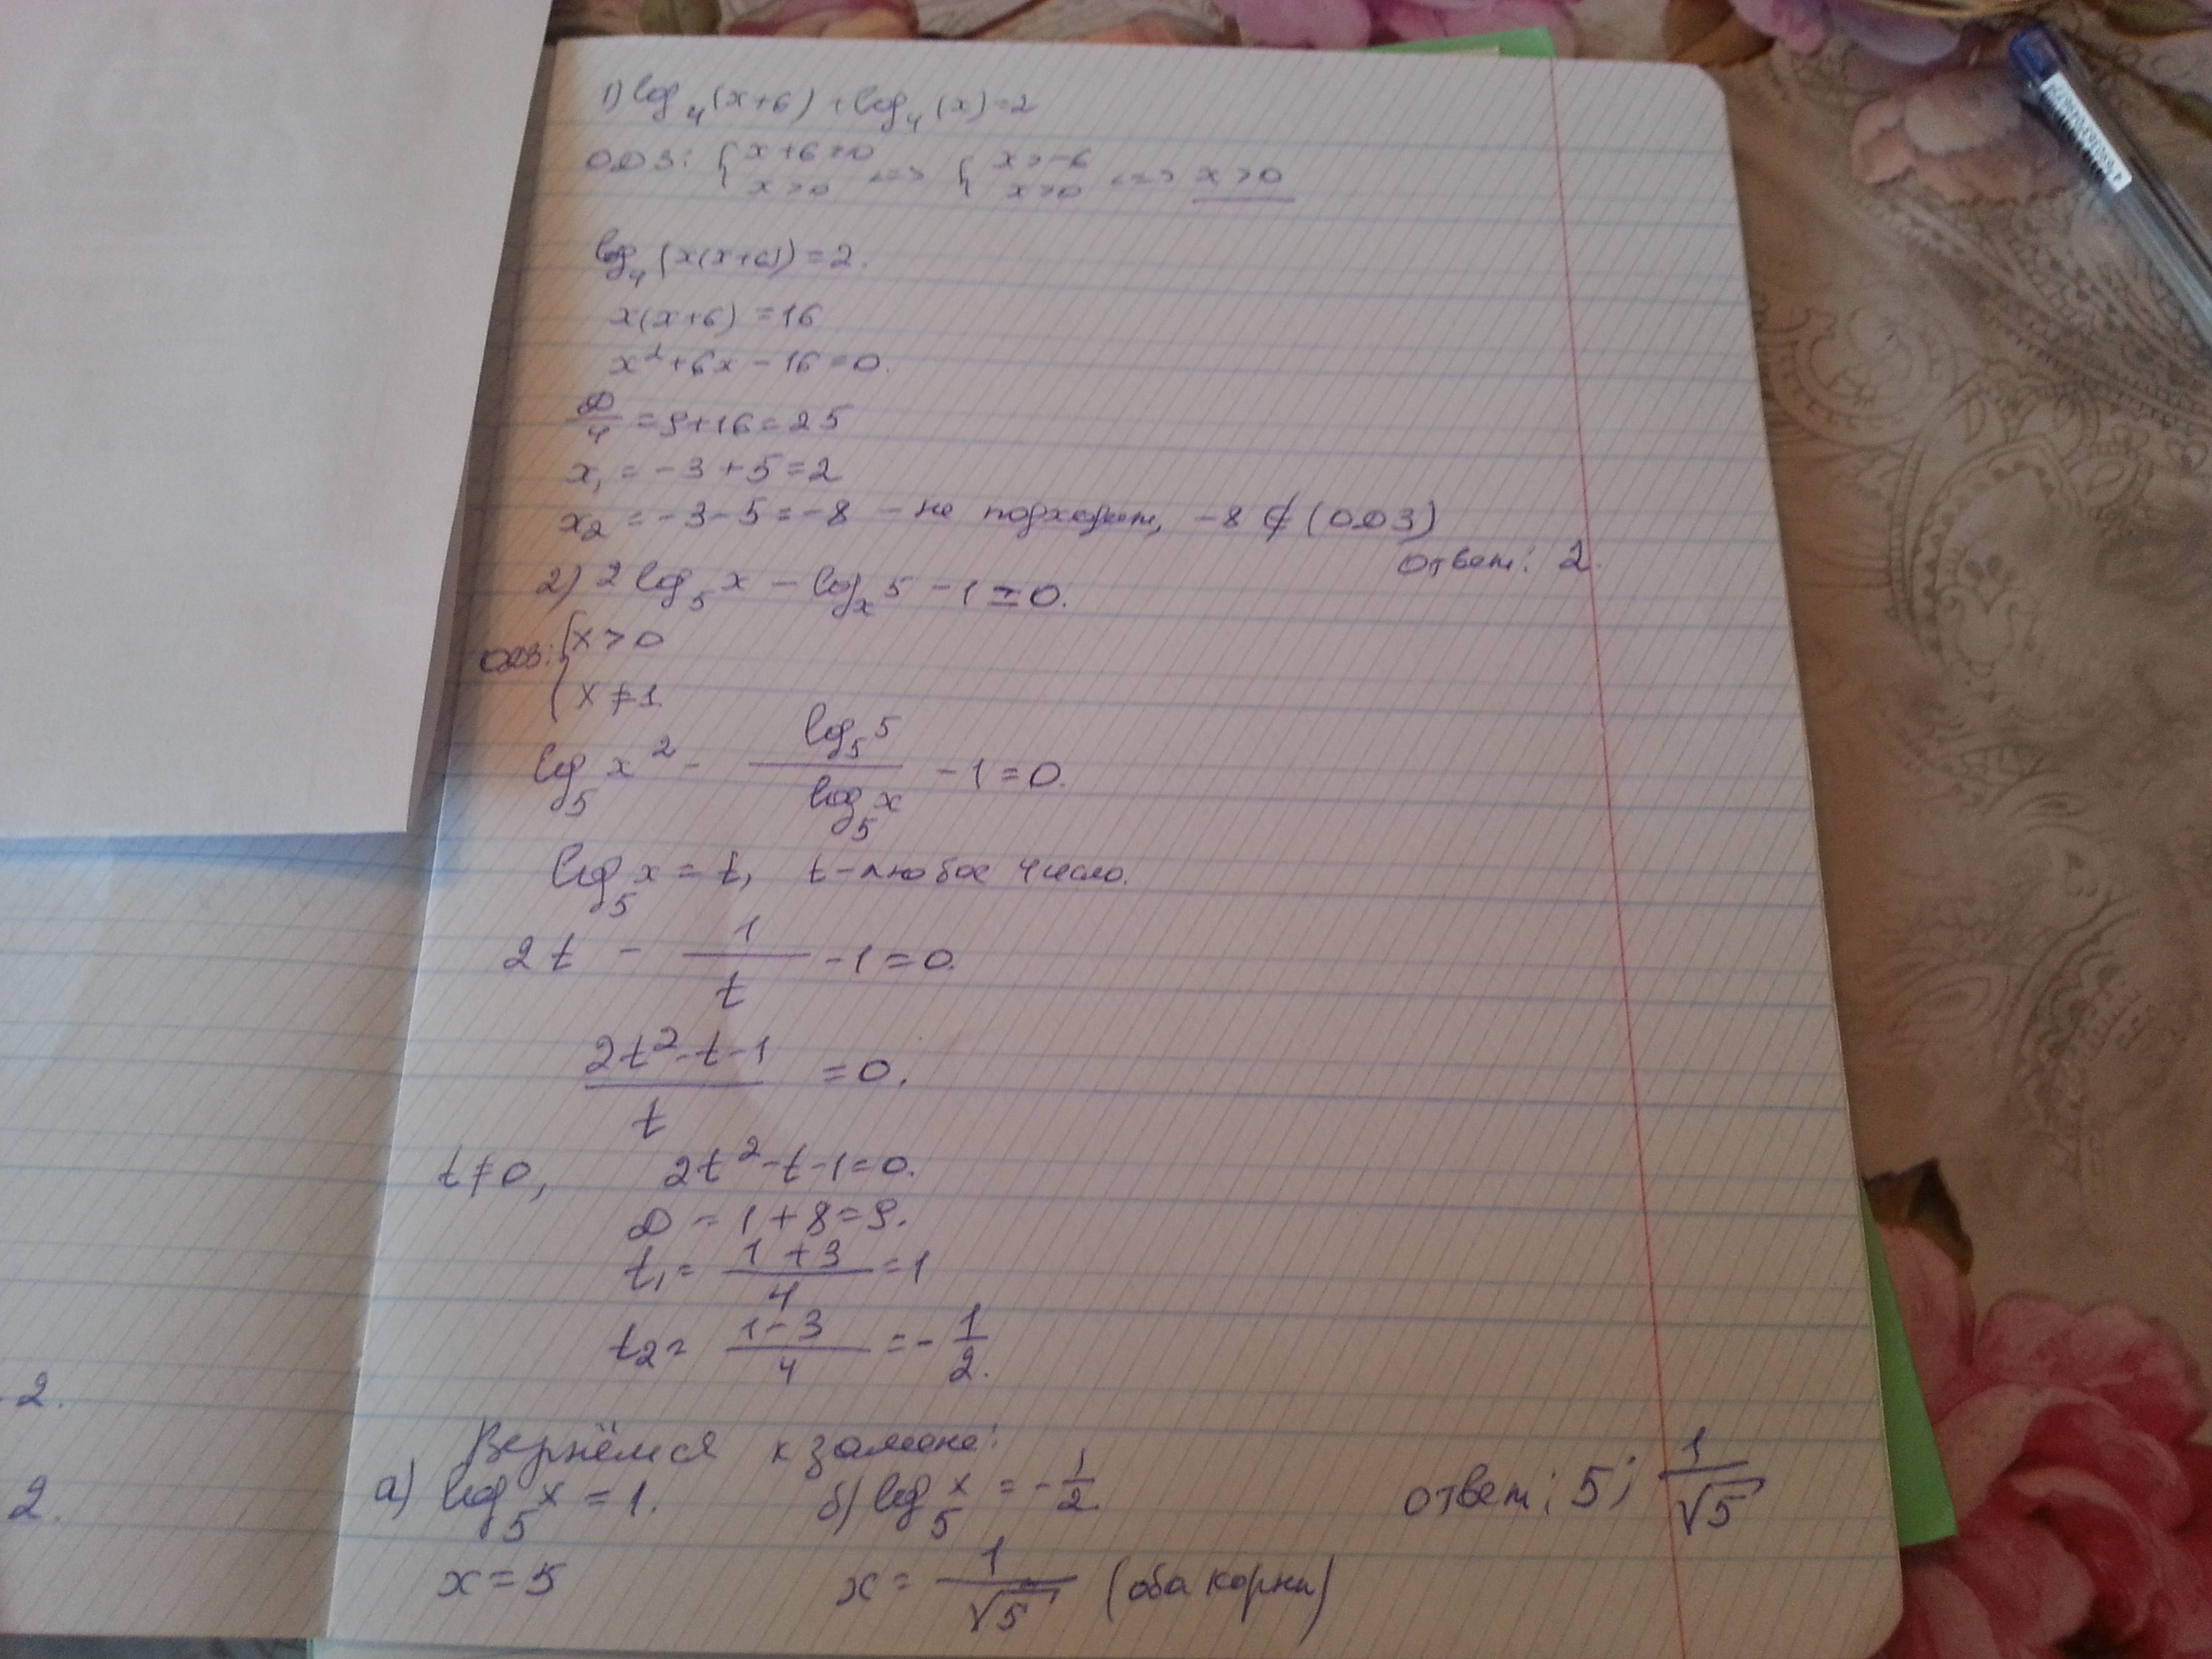 1) log₄(x+6) + log₄(x)=2
ОДЗ: { x+6>0 x>0 <=> { x>-6 x>0 <=> x>0
log₄(x(x+6))=2.
x(x+6)=16
x²+6x-16=0.
D/4 =9+16=25
x₁ = -3+5=2
x₂ = -3-5=-8 - не подходит, -8 ∉ (ОДЗ)
Ответ: 2.
2) 2log₅x - logₓ5 -1=0.
ОДЗ: { x>0
x≠1
log₅x² - log₅5/log₅x -1=0.
log₅x=t, t-любое число.
2t - 1/t -1=0.
2t²-t-1/t =0.
t≠0, 2t²-t-1=0.
D = 1+8=9.
t₁= 1+3/4 =1
t₂= 1-3/4 =-1/2.
2.
Вернёмся к замене:
а) log₅x =1. б) log₅x = -1/2 Ответ: 5; 1/√5
2.
x=5 x= 1/√5 (оба корни)